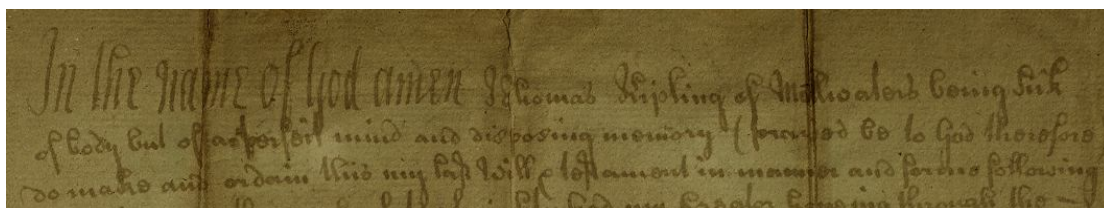 In the name of God amen I Thomas Kipling of Mellwaters being sick
of body but of a perfect mind and disposing memory (praysed be to God therefore
do make and ordain this my last Will & testament in manner and forme following
god my Creator hopeing through the